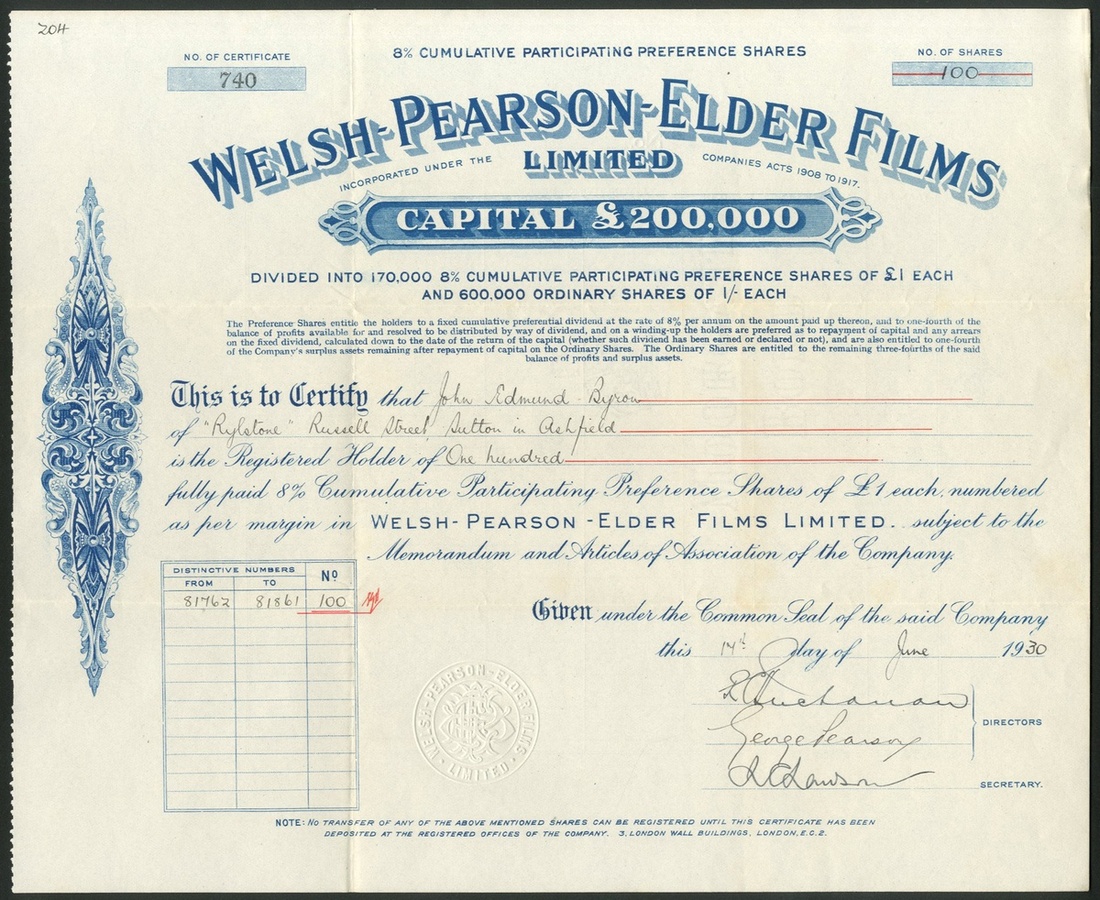 204
NO. OF CERTIFICATE
740
8% CUMULATIVE PARTICIPATING PREFERENCE SHARES
NO. OF SHARES
100
WELSH-PEARSON-ELDER FILMS
LIMITED
INCORPORATED UNDER THE COMPANIES ACTS 1908 TO 1917.
CAPITAL £200,000
DIVIDED INTO 170,000 8% CUMULATIVE PARTICIPATING PREFERENCE SHARES OF £1 EACH
AND 600,000 ORDINARY SHARES OF 1/- EACH
The Preference Shares entitle the holders to a fixed cumulative preferential dividend at the rate of 8% per annum on the amount paid up thereon, and to one-fourth of the
balance of profits available for and resolved to be distributed by way of dividend, and on a winding-up the holders are preferred as to repayment of capital and any arrears
on the fixed dividend, calculated down to the date of the return of the capital (whether such dividend has been earned or declared or not), and are also entitled to one-fourth
of the Company's surplus assets remaining after repayment of capital on the Ordinary Shares. The Ordinary Shares are entitled to the remaining three-fourths of the said
balance of profits and surplus assets.
This is to Certify that John Edmund Byron
of "Rylstone" Russell Street, Sutton in Ashfield
is the Registered Holder of One hundred
fully paid 8% Cumulative Participating Preference Shares of £1 each, numbered
as per margin in WELSH-PEARSON-ELDER FILMS LIMITED. subject to the
Memorandum and Articles of Association of the Company.
DISTINCTIVE NUMBERS
FROM TO No
81762 81861 100
Given under the Common Seal of the said Company
this 14th day of June 1930
Buchanan
George Pearson
DIRECTORS
Lawson
SECRETARY.
WELSH-PEARSON-ELDER FILMS
LIMITED
NOTE: NO TRANSFER OF ANY OF THE ABOVE MENTIONED SHARES CAN BE REGISTERED UNTIL THIS CERTIFICATE HAS BEEN
DEPOSITED AT THE REGISTERED OFFICES OF THE COMPANY. 3, LONDON WALL BUILDINGS, LONDON, E.C.2.